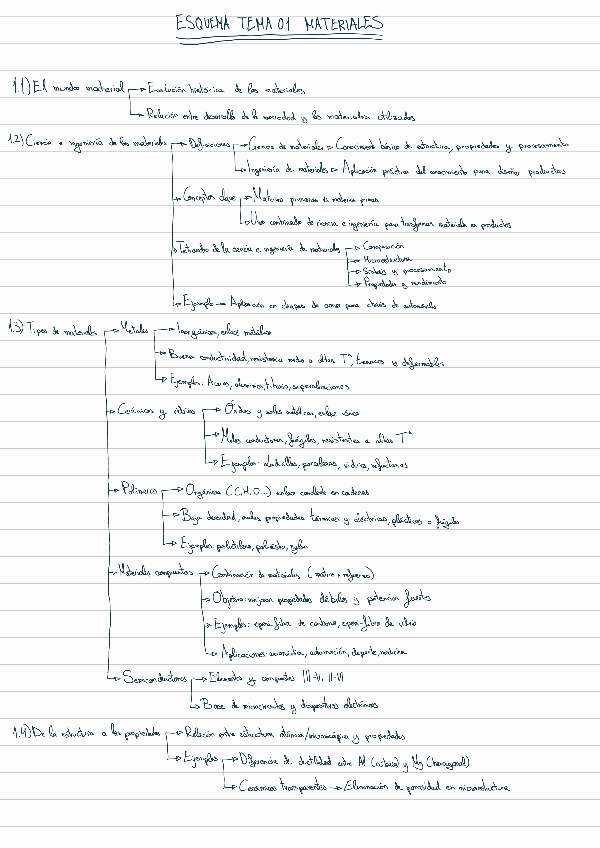 ESQUEMA TEMA 01 MATERIALES
1.1) El mundo material → Evolución histórica de los materiales
→ Relación entre desarrollo de la sociedad y los materiales utilizados
1.2) Ciencia e ingeniería de los materiales → Definiciones → Ciencia de materiales = Conocimiento básico de estructura, propiedades y procesamiento
→ Ingeniería de materiales = Aplicación práctica del conocimiento para diseñar productos
→ Conceptos clave → Materias primarias vs materias primas
→ Uso combinado de ciencia e ingeniería para trasformar materiales en productos
→ Tetraedro de la ciencia e ingeniería de materiales → Composición
→ Microestructura
→ Síntesis y procesamiento
→ Propiedades y rendimiento
→ Ejemplo → Aplicación en chapas de acero para chasis de automóviles
1.3) Tipos de materiales → Metales → Inorgánicos, enlace metálico
→ Buena conductividad, resistencia media a altas Tª, tenaces y deformables
→ Ejemplos: Aceros, aluminio, titanio, superaleaciones
→ Cerámicos y vidrios → Óxidos y sales metálicas, enlace iónico
→ Malos conductores, frágiles, resistentes a altas Tª
→ Ejemplos: ladrillos, porcelanas, vidrios, refractarios
→ Polímeros → Orgánicos (C, H, O...) enlace covalente en cadenas
→ Baja densidad, malas propiedades térmicas y eléctricas, plásticos o frágiles
→ Ejemplos: polietileno, poliéster, nylon
→ Materiales compuestos → Combinación de materiales (matriz + refuerzo)
→ Objetivo: mejorar propiedades débiles y potenciar fuertes
→ Ejemplos: epoxi-fibra de carbono, epoxi-fibra de vidrio
→ Aplicaciones: aeronáutica, automoción, deporte, medicina
→ Semiconductores → Elementos y compuestos III-V, II-VI
→ Base de microcircuitos y dispositivos electrónicos
1.4) De la estructura a las propiedades → Relación entre estructura atómica/microscópica y propiedades
→ Ejemplos → Diferencia de ductilidad entre Al (cúbico) y Mg (hexagonal)
→ Cerámicas transparentes → Eliminación de porosidad en microestructura